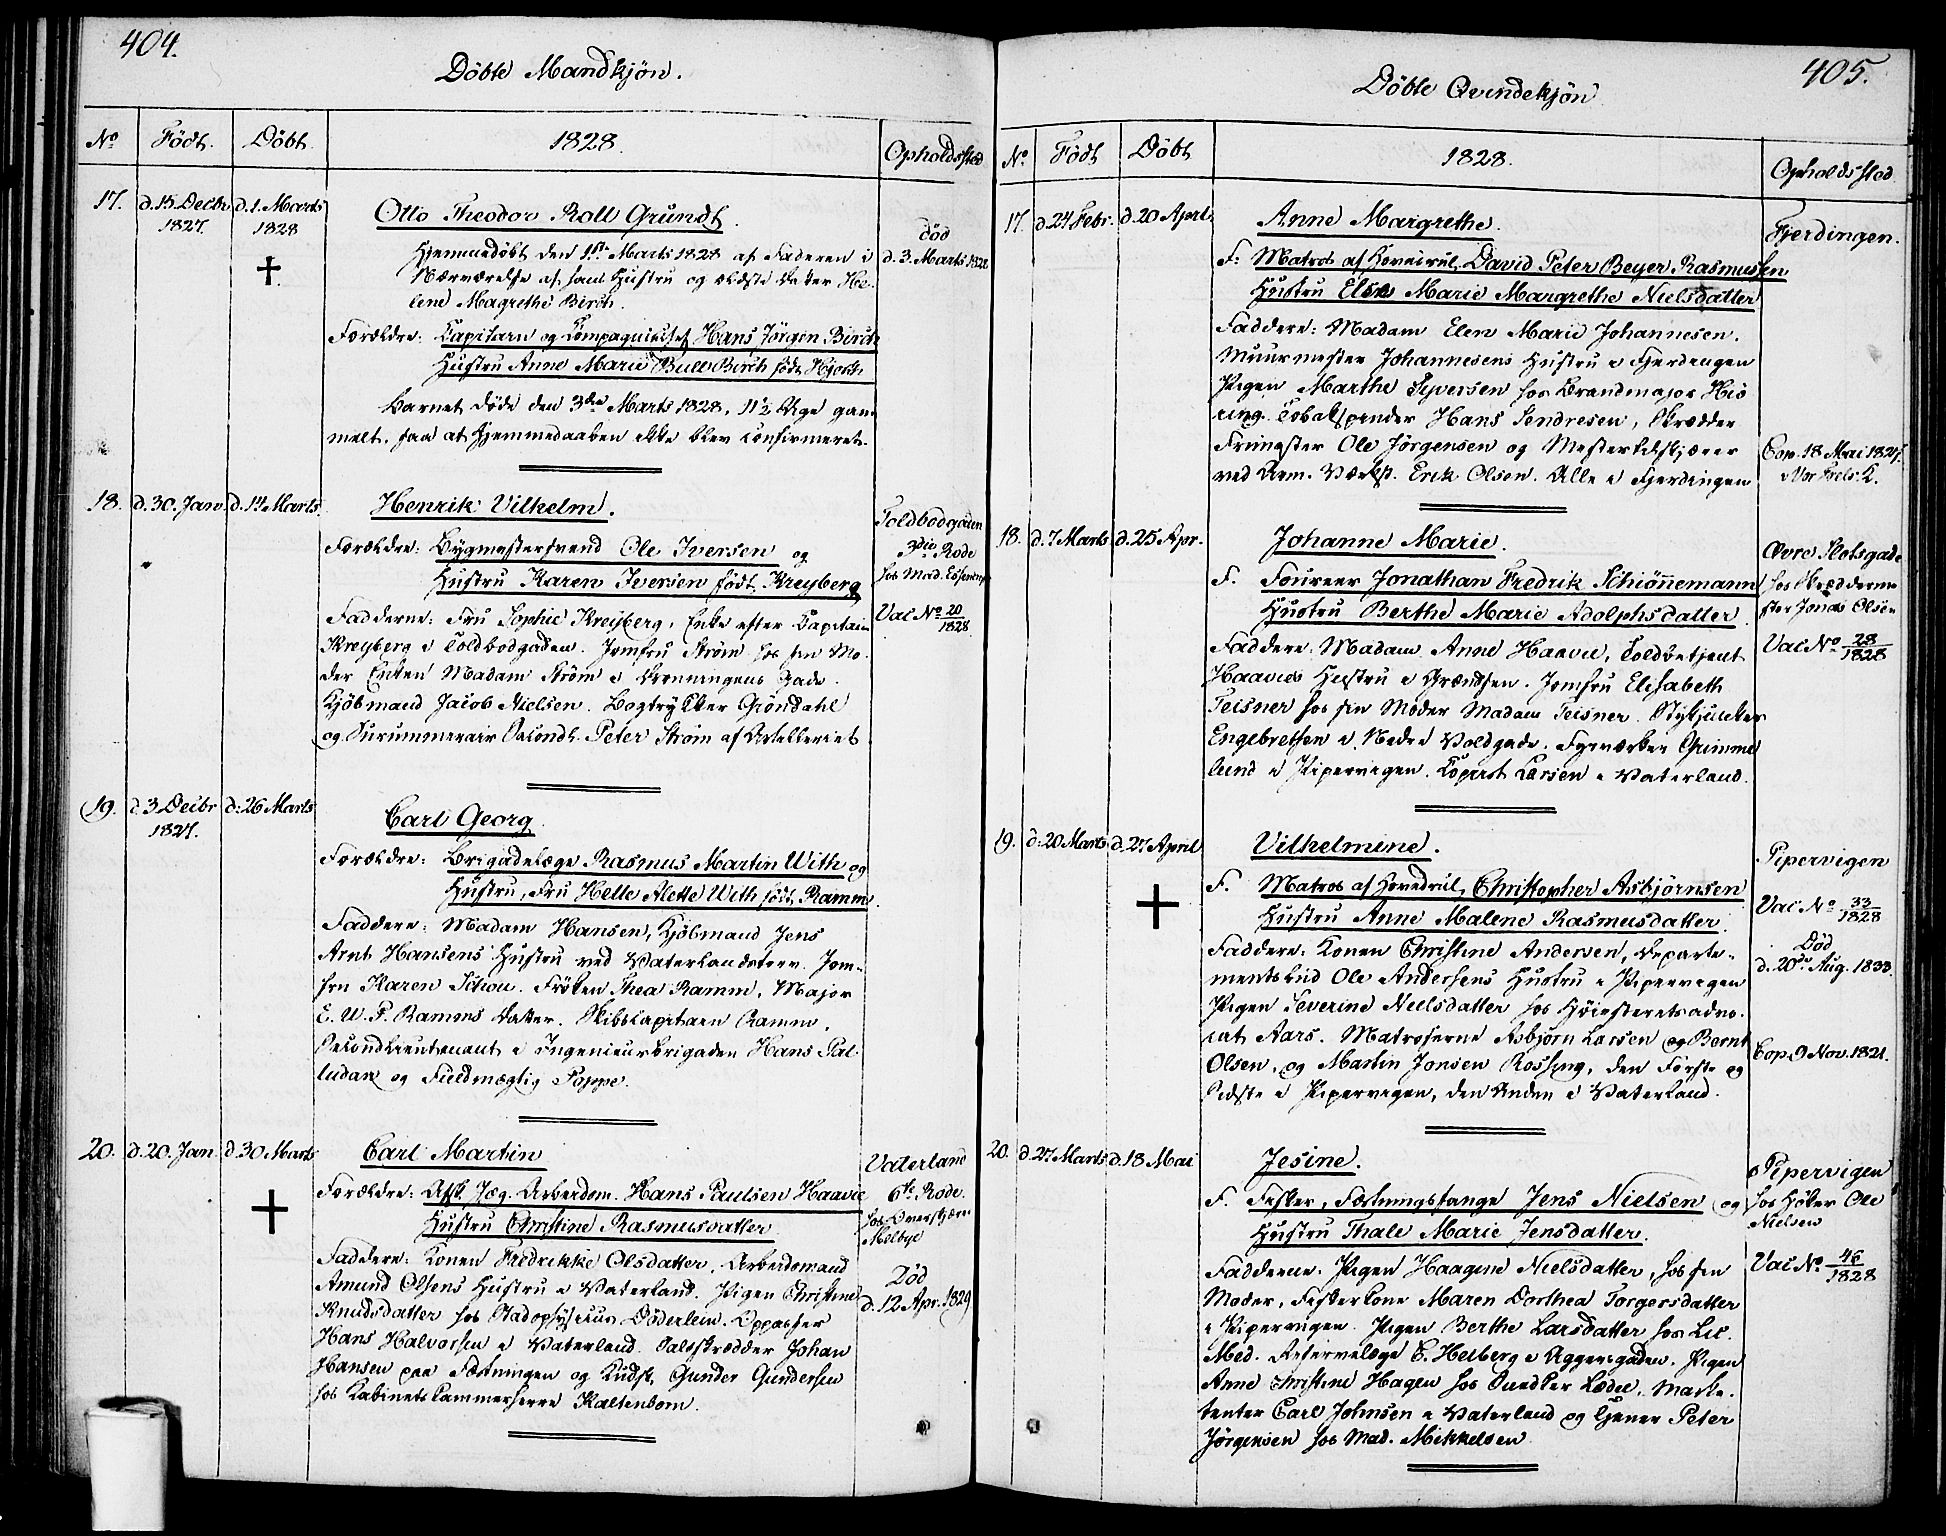 404.
Döbte Mandkjön.
No Födt. Döbt. 1828. Opholdssted
17. d. 15 Decbr 1827. d. 1. Marts 1828
Otto Theodor Roll Grundt.
Hjemmedöbt den 1ste Marts 1828 af Faderen i
Nærværelse af hans Hustru og ældste Datter He-
lene Magrethe Birch.
Forældre: Capitain og Compagniechef Hans Jörgen Birch
Hustru Anne Marie Bull Birch födt Hjorth
Barnet döde den 3die Marts 1828, 11½ Uge gam-
melt, saa at Hjemmedaaben ikke blev confirmeret.
död
d. 3. Marts 1828
18. d. 30. Jan. d. 14 Marts.
Henrik Vilhelm.
Forældre: Bygmestersvend Ole Iversen og
Hustru Karen Iversen födt Kreyberg
Fadderne: Fru Sophie Kreyberg, Enke efter Capitain
Kreyberg i Toldbodgaden. Jomfru Ström hos sin Mo-
der Enken Madam Ström i Dronningens Gade.
Kjöbmand Jacob Nielsen. Bogtrykker Gröndahl
og Surnumerair Secondl. Peter Ström af Artelleriet
Toldbodgaden
3die Rode
hos Mad. Essensen
Vac No 20/1828
19. d. 3 Decbr 1827. d. 26 Marts
Carl Georg.
Forældre: Brigadelæge Rasmus Martin With og
Hustru, Fru Helle Alette With födt Ramm.
Faddere: Madam Hansen, Kjöbmand Jens
Arnt Hansens Hustru ved Vaterlandstorv. Jom-
fru Karen Schou. Fröken Thea Ramm, Major
E. U. F. Ramms Datter. Skibscapitain Ramm.
Secondlieutenant i Ingenieurbrigaden Hans Pal-
ludan og Fuldmægtig Poppe.
20. d. 20. Jan d. 30 Marts
Carl Martin
Forældre: Afsk. Jæg. Arbeidsm. Hans Paulsen Haavie
Hustru Christine Rasmusdatter
Faddere: Konen Fredrikke Olsdatter, Arbeidsmand
Amund Olsens Hustru i Vaterland. Pigen Christine
Knudsdatter hos Stadsphysicus Döderlein. Oppasser
Hans Halvorsen i Vaterland. Salsskrædder Johan
Hansen paa Fæstningen og Kudsk Gunder Gundersen
hos Kabinetskammerherre Kaltenborn.
Vaterland
6te Rode.
hos Overskjærer
Melbye
Död
d. 12 Apr. 1829
405.
Döbte Qvindekjön
No Födt Döbt 1828. Opholdssted
17. d. 24 Febr. d. 20 April
Anne Margrethe.
F: Matros af Hovedrul. David Peter Beyer Rasmussen
Hustru Else Marie Margrethe Nielsdatter
Faddere: Madam Elen Marie Johannesen.
Muurmester Johannesens Hustru i Fjerdingen
Pigen Marthe Syversen hos Brandmajor Hiö
ring. Tobakspinder Hans Sendresen, Skrædder
Frimester Ole Jörgensen og Mestertilskjærer
ved Arm. Værkst. Erik Olsen. Alle i Fjerdingen
Fjerdingen.
Cop. 18 Mai 1827.
i Vor Frels. K.
18. d. 7 Marts d. 25 Apr.
Johanne Marie.
F. Foureer Jonathan Fredrik Schiönnemann
Hustru Berthe Marie Adolphsdatter.
Faddere: Madam Anne Haavie, Toldbetjent
Haavies Hustru i Grændsen. Jomfru Elisabeth
Teisner hos sin Moder Madam Teisner. Stykjunker
Engebretsen i Nedre Voldgade. Fyrværker Grimme
lund i Pipervigen. Copist Larsen i Vaterland.
Övre Slotsgade
hos Skrædderme
ster Jonas Olsen
Vac No 28/1828
19. d. 20 Marts d. 27 April
Vilhelmine.
F. Matros af Hovedrul. Christopher Asbjörnsen
Hustru Anne Malene Rasmusdatter.
Faddere: Konen Christine Andersen, Departe-
mentsbud Ole Andersens Hustru i Pipervigen
Pigen Severine Nielsdatter hos Höiesteretsadvo-
cat Aars. Matroserne Asbjörn Larsen og Bernt
Olsen, og Martin Jonsen Rossing, den Förste og
Sidste i Pipervigen, den Anden i Vaterland.
Pipervigen
Vac No 33/1828
Död
d. 20de Aug. 1833.
Cop. 9 Nov. 1821.
20. d. 27 Marts d. 18 Mai
Jesine.
F. Fisker, Fæstningsfange Jens Nielsen og
Hustru Thale Marie Jensdatter.
Fadderne. Pigen Haagine Nielsdatter, hos sin
Moder, Fiskerkone Maren Dorthea Torgersdatter
i Pipervigen. Pigen Berthe Larsdatter hos Lic.
Med. Reservelæge C. Heiberg i Aggersgaden. Pigen
Anne Christine Hagen hos Snedker Lædel. Marke-
tenter Carl Johnsen i Vaterland og Tjener Peter
Jörgensen hos Mad. Mikkelsen
Pipervigen
hos Höker Ole
Nielsen
Vac No. 46/1828